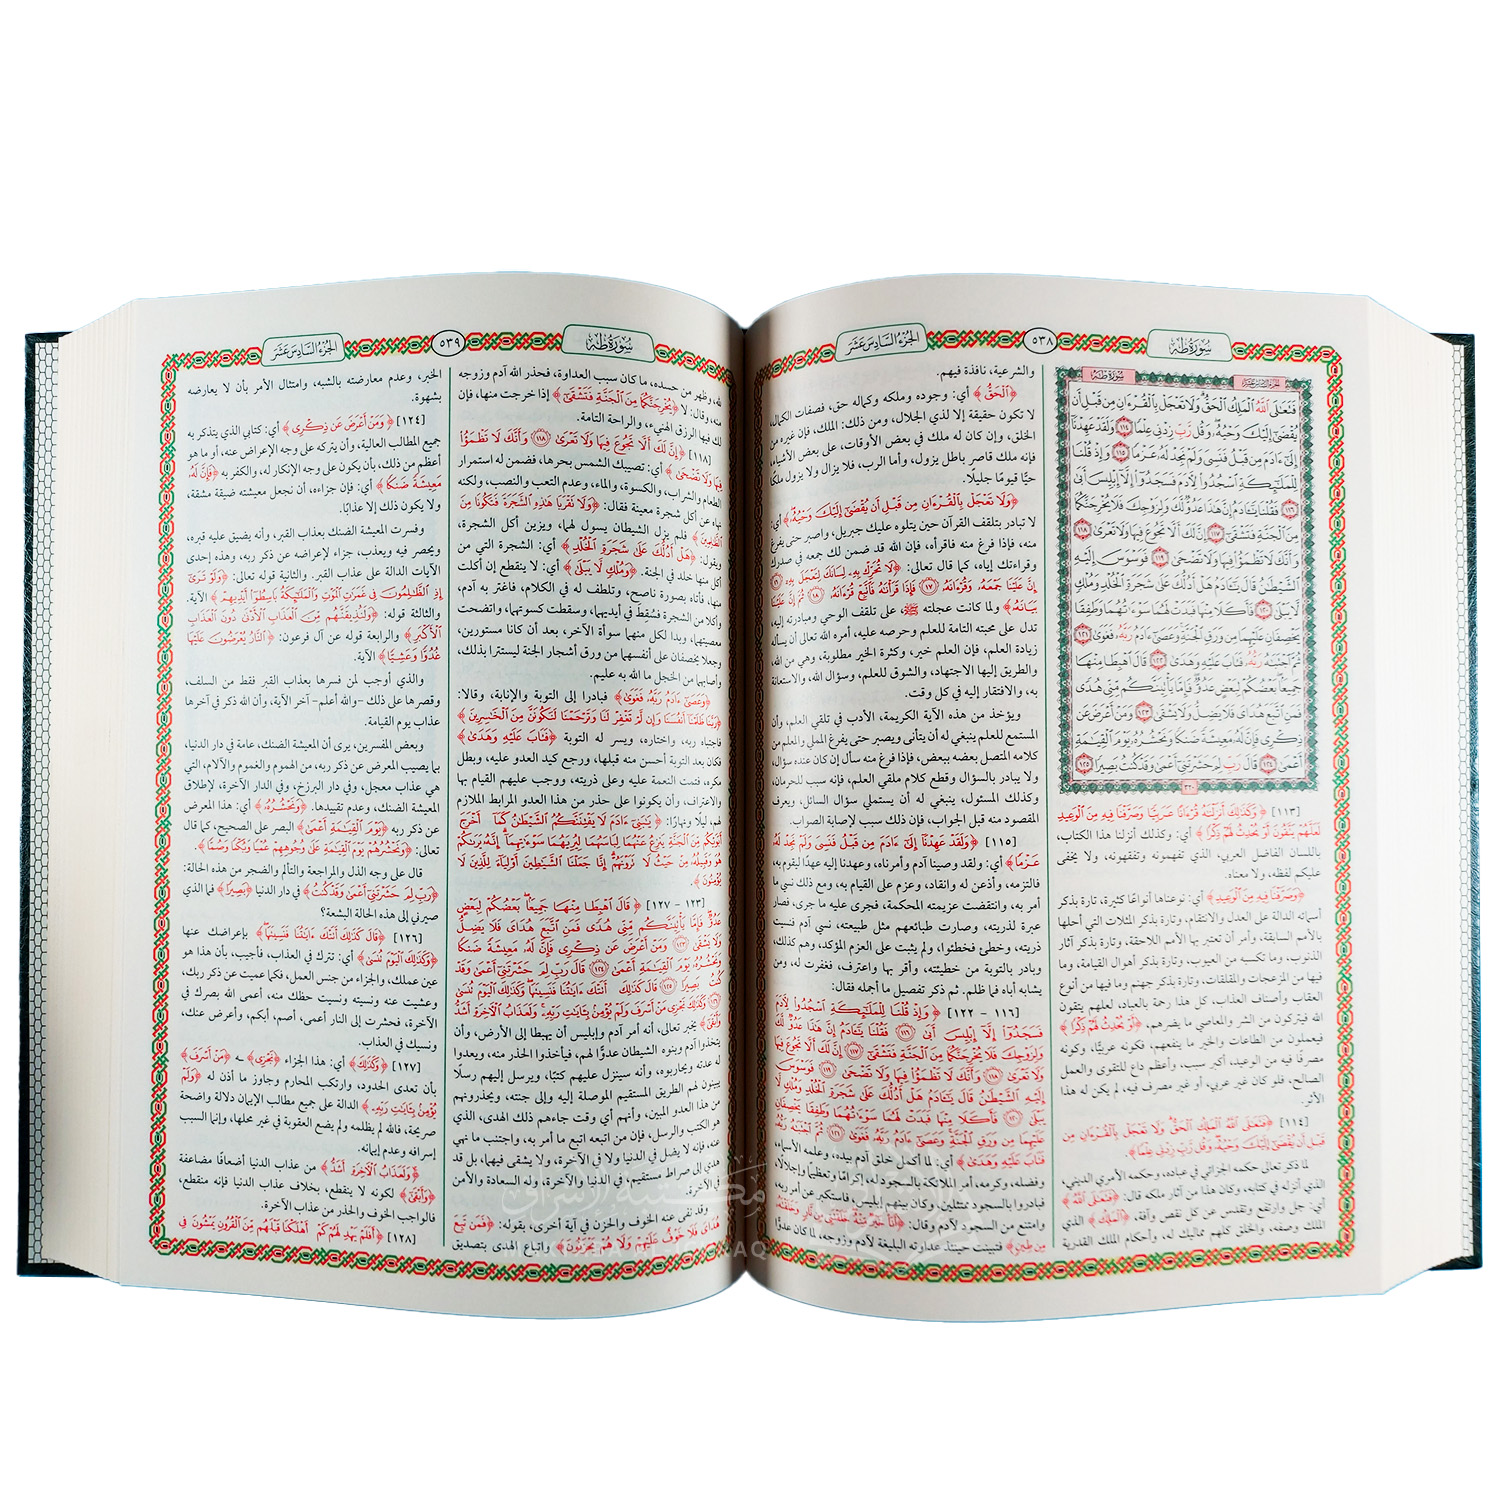 سورة طه
٥٣٨
الجزء السادس عشر
سورة طه
الجزء السادس عشر
فَتَعَٰلَى ٱللَّهُ ٱلْمَلِكُ ٱلْحَقُّ ۗ وَلَا تَعْجَلْ بِٱلْقُرْءَانِ مِن قَبْلِ أَن
يُقْضَىٰٓ إِلَيْكَ وَحْيُهُۥ ۖ وَقُل رَّبِّ زِدْنِى عِلْمًا ١١٤ وَلَقَدْ عَهِدْنَآ
إِلَىٰٓ ءَادَمَ مِن قَبْلُ فَنَسِىَ وَلَمْ نَجِدْ لَهُۥ عَزْمًا ١١٥ وَإِذْ قُلْنَا
لِلْمَلَٰٓئِكَةِ ٱسْجُدُوا۟ لِءَادَمَ فَسَجَدُوٓا۟ إِلَّآ إِبْلِيسَ أَبَىٰ
١١٦ فَقُلْنَا يَٰٓـَٔادَمُ إِنَّ هَٰذَا عَدُوٌّ لَّكَ وَلِزَوْجِكَ فَلَا يُخْرِجَنَّكُمَا
مِنَ ٱلْجَنَّةِ فَتَشْقَىٰٓ ١١٧ إِنَّ لَكَ أَلَّا تَجُوعَ فِيهَا وَلَا تَعْرَىٰ ١١٨
وَأَنَّكَ لَا تَظْمَؤُا۟ فِيهَا وَلَا تَضْحَىٰ ١١٩ فَوَسْوَسَ إِلَيْهِ
ٱلشَّيْطَٰنُ قَالَ يَٰٓـَٔادَمُ هَلْ أَدُلُّكَ عَلَىٰ شَجَرَةِ ٱلْخُلْدِ وَمُلْكٍ
لَّا يَبْلَىٰ ١٢٠ فَأَكَلَا مِنْهَا فَبَدَتْ لَهُمَا سَوْءَٰتُهُمَا وَطَفِقَا
يَخْصِفَانِ عَلَيْهِمَا مِن وَرَقِ ٱلْجَنَّةِ ۚ وَعَصَىٰٓ ءَادَمُ رَبَّهُۥ فَغَوَىٰ ١٢١
ثُمَّ ٱجْتَبَٰهُ رَبُّهُۥ فَتَابَ عَلَيْهِ وَهَدَىٰ ١٢٢ قَالَ ٱهْبِطَا مِنْهَا
جَمِيعًۢا ۖ بَعْضُكُمْ لِبَعْضٍ عَدُوٌّ ۖ فَإِمَّا يَأْتِيَنَّكُم مِّنِّى هُدًى
فَمَنِ ٱتَّبَعَ هُدَاىَ فَلَا يَضِلُّ وَلَا يَشْقَىٰ ١٢٣ وَمَنْ أَعْرَضَ عَن
ذِكْرِى فَإِنَّ لَهُۥ مَعِيشَةً ضَنكًا وَنَحْشُرُهُۥ يَوْمَ ٱلْقِيَٰمَةِ
أَعْمَىٰ ١٢٤ قَالَ رَبِّ لِمَ حَشَرْتَنِىٓ أَعْمَىٰ وَقَدْ كُنتُ بَصِيرًا ١٢٥
٣٢٠
[١١٣] ﴿وَكَذَٰلِكَ أَنزَلْنَٰهُ قُرْءَانًا عَرَبِيًّا وَصَرَّفْنَا فِيهِ مِنَ ٱلْوَعِيدِ
لَعَلَّهُمْ يَتَّقُونَ أَوْ يُحْدِثُ لَهُمْ ذِكْرًا﴾ أي: وكذلك أنزلنا هذا الكتاب،
باللسان الفاضل العربي، الذي تفهمونه وتفقهونه، ولا يخفى
عليكم لفظه، ولا معناه.
﴿وَصَرَّفْنَا فِيهِ مِنَ ٱلْوَعِيدِ﴾ أي: نوعناها أنواعًا كثيرة، تارة بذكر
أسمائه الدالة على العدل والانتقام، وتارة بذكر المثلات التي أحلها
بالأمم السابقة، وأمر أن تعتبر بها الأمم اللاحقة، وتارة بذكر آثار
الذنوب، وما تكسبه من العيوب، وتارة بذكر أهوال القيامة، وما
فيها من المزعجات والمقلقات، وتارة بذكر جهنم وما فيها من أنواع
العقاب وأصناف العذاب، كل هذا رحمة بالعباد، لعلهم يتقون
الله فيتركون من الشر والمعاصي ما يضرهم، ﴿أَوْ يُحْدِثُ لَهُمْ ذِكْرًا﴾
فيعملون من الطاعات والخير ما ينفعهم، فكونه عربيًّا، وكونه
مصرفًا فيه من الوعيد، أكبر سبب، وأعظم داع للتقوى والعمل
الصالح، فلو كان غير عربي، أو غير مصرف فيه، لم يكن له هذا
الأثر.
[١١٤] ﴿فَتَعَٰلَى ٱللَّهُ ٱلْمَلِكُ ٱلْحَقُّ ۗ وَلَا تَعْجَلْ بِٱلْقُرْءَانِ مِن
قَبْلِ أَن يُقْضَىٰٓ إِلَيْكَ وَحْيُهُۥ ۖ وَقُل رَّبِّ زِدْنِى عِلْمًا﴾.
لما ذكر تعالى حكمه الجزائي في عباده، وحكمه الأمري الديني،
الذي أنزله في كتابه، وكان هذا من آثار ملكه قال: ﴿فَتَعَٰلَى ٱللَّهُ﴾
أي: جل وارتفع وتقدس عن كل نقص وآفة، ﴿ٱلْمَلِكُ﴾ الذي
الملك وصفه، والخلق كلهم مماليك له، وأحكام الملك القدرية
والشرعية، نافذة فيهم.
﴿ٱلْحَقُّ﴾ أي: وجوده وملكه وكماله حق، فصفات الكمال،
لا تكون حقيقة إلا لذي الجلال، ومن ذلك: الملك، فإن غيره من
الخلق، وإن كان له ملك في بعض الأوقات، على بعض الأشياء،
فإنه ملك قاصر باطل يزول، وأما الرب، فلا يزال ولا يزول ملكًا
حيًّا قيومًا جليلًا.
﴿وَلَا تَعْجَلْ بِٱلْقُرْءَانِ مِن قَبْلِ أَن يُقْضَىٰٓ إِلَيْكَ وَحْيُهُۥ﴾ أي:
لا تبادر بتلقف القرآن حين يتلوه عليك جبريل، واصبر حتى يفرغ
منه، فإذا فرغ منه فاقرأه، فإن الله قد ضمن لك جمعه في صدرك
وقراءتك إياه، كما قال تعالى: ﴿لَا تُحَرِّكْ بِهِۦ لِسَانَكَ لِتَعْجَلَ بِهِۦٓ ١٦
إِنَّ عَلَيْنَا جَمْعَهُۥ وَقُرْءَانَهُۥ ١٧ فَإِذَا قَرَأْنَٰهُ فَٱتَّبِعْ قُرْءَانَهُۥ ١٨ ثُمَّ إِنَّ عَلَيْنَا
بَيَانَهُۥ﴾ ولما كانت عجلته ﷺ، على تلقف الوحي ومبادرته إليه،
تدل على محبته التامة للعلم وحرصه عليه، أمره الله تعالى أن يسأله
زيادة العلم، فإن العلم خير، وكثرة الخير مطلوبة، وهي من الله،
والطريق إليها الاجتهاد، والشوق للعلم، وسؤال الله، والاستعانة
به، والافتقار إليه في كل وقت.
ويؤخذ من هذه الآية الكريمة، الأدب في تلقي العلم، وأن
المستمع للعلم ينبغي له أن يتأنى ويصبر حتى يفرغ المملي والمعلم من
كلامه المتصل بعضه ببعض، فإذا فرغ منه سأل إن كان عنده سؤال،
ولا يبادر بالسؤال وقطع كلام ملقي العلم، فإنه سبب للحرمان،
وكذلك المسئول، ينبغي له أن يستملي سؤال السائل، ويعرف
المقصود منه قبل الجواب، فإن ذلك سبب لإصابة الصواب.
[١١٥] ﴿وَلَقَدْ عَهِدْنَآ إِلَىٰٓ ءَادَمَ مِن قَبْلُ فَنَسِىَ وَلَمْ نَجِدْ لَهُۥ
عَزْمًا﴾ أي: ولقد وصينا آدم وأمرناه، وعهدنا إليه عهدًا ليقوم به،
فالتزمه، وأذعن له وانقاد، وعزم على القيام به، ومع ذلك نسي ما
أمر به، وانتقضت عزيمته المحكمة، فجرى عليه ما جرى، فصار
عبرة لذريته، وصارت طبائعهم مثل طبيعته، نسي آدم فنسيت
ذريته، وخطئ فخطئوا، ولم يثبت على العزم المؤكد، وهم كذلك،
وبادر بالتوبة من خطيئته، وأقر بها واعترف، فغفرت له، ومن
يشابه أباه فما ظلم. ثم ذكر تفصيل ما أجمله فقال:
[١١٦ - ١٢٢] ﴿وَإِذْ قُلْنَا لِلْمَلَٰٓئِكَةِ ٱسْجُدُوا۟ لِءَادَمَ
فَسَجَدُوٓا۟ إِلَّآ إِبْلِيسَ أَبَىٰ ١١٦ فَقُلْنَا يَٰٓـَٔادَمُ إِنَّ هَٰذَا عَدُوٌّ لَّكَ
وَلِزَوْجِكَ فَلَا يُخْرِجَنَّكُمَا مِنَ ٱلْجَنَّةِ فَتَشْقَىٰٓ ١١٧ إِنَّ لَكَ أَلَّا تَجُوعَ فِيهَا
وَلَا تَعْرَىٰ ١١٨ وَأَنَّكَ لَا تَظْمَؤُا۟ فِيهَا وَلَا تَضْحَىٰ ١١٩ فَوَسْوَسَ
إِلَيْهِ ٱلشَّيْطَٰنُ قَالَ يَٰٓـَٔادَمُ هَلْ أَدُلُّكَ عَلَىٰ شَجَرَةِ ٱلْخُلْدِ وَمُلْكٍ لَّا
يَبْلَىٰ ١٢٠ فَأَكَلَا مِنْهَا فَبَدَتْ لَهُمَا سَوْءَٰتُهُمَا وَطَفِقَا يَخْصِفَانِ
عَلَيْهِمَا مِن وَرَقِ ٱلْجَنَّةِ ۚ وَعَصَىٰٓ ءَادَمُ رَبَّهُۥ فَغَوَىٰ ١٢١ ثُمَّ ٱجْتَبَٰهُ رَبُّهُۥ
فَتَابَ عَلَيْهِ وَهَدَىٰ﴾ أي: لما أكمل خلق آدم بيده، وعلمه الأسماء،
وفضله، وكرمه، أمر الملائكة بالسجود له، إكرامًا وتعظيمًا وإجلالًا،
فبادروا بالسجود ممتثلين، وكان بينهم إبليس، فاستكبر عن أمر ربه،
وامتنع من السجود لآدم وقال: ﴿أَنَا۠ خَيْرٌ مِّنْهُ خَلَقْتَنِى مِن نَّارٍ وَخَلَقْتَهُۥ
مِن طِينٍ﴾ فتبينت حينئذ، عداوته البليغة لآدم وزوجه، لما كان عدوًّا
سورة طه
٥٣٩
الجزء السادس عشر
لله، وظهر من حسده، ما كان سبب العداوة، فحذر الله آدم وزوجه
منه، وقال: لا ﴿يُخْرِجَنَّكُمَا مِنَ ٱلْجَنَّةِ فَتَشْقَىٰٓ﴾ إذا خرجت منها، فإن
لك فيها الرزق الهنيء، والراحة التامة.
[١١٨] ﴿إِنَّ لَكَ أَلَّا تَجُوعَ فِيهَا وَلَا تَعْرَىٰ ١١٨ وَأَنَّكَ لَا تَظْمَؤُا۟
فِيهَا وَلَا تَضْحَىٰ﴾ أي: تصيبك الشمس بحرها، فضمن له استمرار
الطعام والشراب، والكسوة، والماء، وعدم التعب والنصب، ولكنه
نهاه عن أكل شجرة معينة فقال: ﴿وَلَا تَقْرَبَا هَٰذِهِ ٱلشَّجَرَةَ فَتَكُونَا مِنَ
ٱلظَّٰلِمِينَ﴾ فلم يزل الشيطان يسول لهما، ويزين أكل الشجرة،
ويقول: ﴿هَلْ أَدُلُّكَ عَلَىٰ شَجَرَةِ ٱلْخُلْدِ﴾ أي: الشجرة التي من
أكل منها خلد في الجنة. ﴿وَمُلْكٍ لَّا يَبْلَىٰ﴾ أي: لا ينقطع إن أكلت
منها، فأتاه بصورة ناصح، وتلطف له في الكلام، فاغتر به آدم،
وأكلا من الشجرة فسُقط في أيديهما، وسقطت كسوتهما، واتضحت
معصيتهما، وبدا لكل منهما سوأة الآخر، بعد أن كانا مستورين،
وجعلا يخصفان على أنفسهما من ورق أشجار الجنة ليستترا بذلك،
وأصابهما من الخجل ما الله به عليم.
﴿وَعَصَىٰٓ ءَادَمُ رَبَّهُۥ فَغَوَىٰ﴾ فبادرا إلى التوبة والإنابة، وقالا:
﴿رَبَّنَا ظَلَمْنَآ أَنفُسَنَا وَإِن لَّمْ تَغْفِرْ لَنَا وَتَرْحَمْنَا لَنَكُونَنَّ مِنَ ٱلْخَٰسِرِينَ﴾
فاجتباه ربه، واختاره، ويسر له التوبة ﴿فَتَابَ عَلَيْهِ وَهَدَىٰ﴾،
فكان بعد التوبة أحسن منه قبلها، ورجع كيد العدو عليه، وبطل
مكره، فتمت النعمة عليه وعلى ذريته، ووجب عليهم القيام بها
والاعتراف، وأن يكونوا على حذر من هذا العدو المرابط الملازم
لهم، ليلًا ونهارًا: ﴿يَٰبَنِىٓ ءَادَمَ لَا يَفْتِنَنَّكُمُ ٱلشَّيْطَٰنُ كَمَآ أَخْرَجَ
أَبَوَيْكُم مِّنَ ٱلْجَنَّةِ يَنزِعُ عَنْهُمَا لِبَاسَهُمَا لِيُرِيَهُمَا سَوْءَٰتِهِمَآ ۗ إِنَّهُۥ يَرَىٰكُمْ
هُوَ وَقَبِيلُهُۥ مِنْ حَيْثُ لَا تَرَوْنَهُمْ ۗ إِنَّا جَعَلْنَا ٱلشَّيَٰطِينَ أَوْلِيَآءَ لِلَّذِينَ لَا
يُؤْمِنُونَ﴾.
[١٢٣ - ١٢٧] ﴿قَالَ ٱهْبِطَا مِنْهَا جَمِيعًۢا ۖ بَعْضُكُمْ لِبَعْضٍ
عَدُوٌّ ۖ فَإِمَّا يَأْتِيَنَّكُم مِّنِّى هُدًى فَمَنِ ٱتَّبَعَ هُدَاىَ فَلَا يَضِلُّ
وَلَا يَشْقَىٰ ١٢٣ وَمَنْ أَعْرَضَ عَن ذِكْرِى فَإِنَّ لَهُۥ مَعِيشَةً ضَنكًا
وَنَحْشُرُهُۥ يَوْمَ ٱلْقِيَٰمَةِ أَعْمَىٰ ١٢٤ قَالَ رَبِّ لِمَ حَشَرْتَنِىٓ أَعْمَىٰ وَقَدْ
كُنتُ بَصِيرًا ١٢٥ قَالَ كَذَٰلِكَ أَتَتْكَ ءَايَٰتُنَا فَنَسِيتَهَا ۖ وَكَذَٰلِكَ ٱلْيَوْمَ تُنسَىٰ
١٢٦ وَكَذَٰلِكَ نَجْزِى مَنْ أَسْرَفَ وَلَمْ يُؤْمِنۢ بِـَٔايَٰتِ رَبِّهِۦ ۚ وَلَعَذَابُ ٱلْءَاخِرَةِ أَشَدُّ
وَأَبْقَىٰٓ﴾ يخبر تعالى، أنه أمر آدم وإبليس أن يهبطا إلى الأرض، وأن
يتخذوا آدم وبنوه الشيطان عدوًّا لهم، فيأخذوا الحذر منه، ويعدوا
له عدته ويحاربوه، وأنه سينزل عليهم كتبًا، ويرسل إليهم رسلًا
يبينون لهم الطريق المستقيم الموصلة إليه وإلى جنته، ويحذرونهم
من هذا العدو المبين، وأنهم أي وقت جاءهم ذلك الهدى، الذي
هو الكتب والرسل، فإن من اتبعه اتبع ما أمر به، واجتنب ما نهي
عنه، فإنه لا يضل في الدنيا ولا في الآخرة، ولا يشقى فيهما، بل قد
هدي إلى صراط مستقيم، في الدنيا والآخرة، وله السعادة والأمن
في الآخرة.
وقد نفى عنه الخوف والحزن في آية أخرى، بقوله: ﴿فَمَن تَبِعَ
هُدَاىَ فَلَا خَوْفٌ عَلَيْهِمْ وَلَا هُمْ يَحْزَنُونَ﴾ واتباع الهدى بتصديق
الخبر، وعدم معارضته بالشبه، وامتثال الأمر بأن لا يعارضه
بشهوة.
[١٢٤] ﴿وَمَنْ أَعْرَضَ عَن ذِكْرِى﴾ أي: كتابي الذي يتذكر به
جميع المطالب العالية، وأن يتركه على وجه الإعراض عنه، أو ما هو
أعظم من ذلك، بأن يكون على وجه الإنكار له، والكفر به ﴿فَإِنَّ لَهُۥ
مَعِيشَةً ضَنكًا﴾ أي: فإن جزاءه، أن نجعل معيشته ضيقة مشقة،
ولا يكون ذلك إلا عذابًا.
وفسرت المعيشة الضنك بعذاب القبر، وأنه يضيق عليه قبره،
ويحصر فيه ويعذب، جزاء لإعراضه عن ذكر ربه، وهذه إحدى
الآيات الدالة على عذاب القبر. والثانية قوله تعالى: ﴿وَلَوْ تَرَىٰٓ
إِذِ ٱلظَّٰلِمُونَ فِى غَمَرَٰتِ ٱلْمَوْتِ وَٱلْمَلَٰٓئِكَةُ بَاسِطُوٓا۟ أَيْدِيهِمْ﴾ الآية.
والثالثة قوله: ﴿وَلَنُذِيقَنَّهُم مِّنَ ٱلْعَذَابِ ٱلْأَدْنَىٰ دُونَ ٱلْعَذَابِ
ٱلْأَكْبَرِ﴾ والرابعة قوله عن آل فرعون: ﴿ٱلنَّارُ يُعْرَضُونَ عَلَيْهَا
غُدُوًّا وَعَشِيًّا﴾ الآية.
والذي أوجب لمن فسرها بعذاب القبر فقط من السلف،
وقصرها على ذلك -والله أعلم- آخر الآية، وأن الله ذكر في آخرها
عذاب يوم القيامة.
وبعض المفسرين، يرى أن المعيشة الضنك، عامة في دار الدنيا،
بما يصيب المعرض عن ذكر ربه، من الهموم والغموم والآلام، التي
هي عذاب معجل، وفي دار البرزخ، وفي الدار الآخرة، لإطلاق
المعيشة الضنك، وعدم تقييدها. ﴿وَنَحْشُرُهُۥ﴾ أي: هذا المعرض
عن ذكر ربه ﴿يَوْمَ ٱلْقِيَٰمَةِ أَعْمَىٰ﴾ البصر على الصحيح، كما قال
تعالى: ﴿وَنَحْشُرُهُمْ يَوْمَ ٱلْقِيَٰمَةِ عَلَىٰ وُجُوهِهِمْ عُمْيًا وَبُكْمًا وَصُمًّا﴾.
قال على وجه الذل والمراجعة والتألم والضجر من هذه الحالة:
﴿رَبِّ لِمَ حَشَرْتَنِىٓ أَعْمَىٰ وَقَدْ كُنتُ﴾ في دار الدنيا ﴿بَصِيرًا﴾ فما الذي
صيرني إلى هذه الحالة البشعة؟
[١٢٦] ﴿قَالَ كَذَٰلِكَ أَتَتْكَ ءَايَٰتُنَا فَنَسِيتَهَا﴾ بإعراضك عنها
﴿وَكَذَٰلِكَ ٱلْيَوْمَ تُنسَىٰ﴾ أي: تترك في العذاب، فأجيب، بأن هذا هو
عين عملك، والجزاء من جنس العمل، فكما عميت عن ذكر ربك،
وعشيت عنه ونسيته ونسيت حظك منه، أعمى الله بصرك في
الآخرة، فحشرت إلى النار أعمى، أصم، أبكم، وأعرض عنك،
ونسيك في العذاب.
[١٢٧] ﴿وَكَذَٰلِكَ﴾ أي: هذا الجزاء ﴿نَجْزِى﴾ ـه ﴿مَنْ أَسْرَفَ﴾
بأن تعدى الحدود، وارتكب المحارم وجاوز ما أذن له ﴿وَلَمْ
يُؤْمِنۢ بِـَٔايَٰتِ رَبِّهِۦ﴾ الدالة على جميع مطالب الإيمان دلالة واضحة
صريحة، فالله لم يظلمه ولم يضع العقوبة في غير محلها، وإنما السبب
إسرافه وعدم إيمانه.
﴿وَلَعَذَابُ ٱلْءَاخِرَةِ أَشَدُّ﴾ من عذاب الدنيا أضعافًا مضاعفة
﴿وَأَبْقَىٰٓ﴾ لكونه لا ينقطع، بخلاف عذاب الدنيا فإنه منقطع،
فالواجب الخوف والحذر من عذاب الآخرة.
[١٢٨] ﴿أَفَلَمْ يَهْدِ لَهُمْ كَمْ أَهْلَكْنَا قَبْلَهُم مِّنَ ٱلْقُرُونِ يَمْشُونَ فِى
مكتبة الإشراق